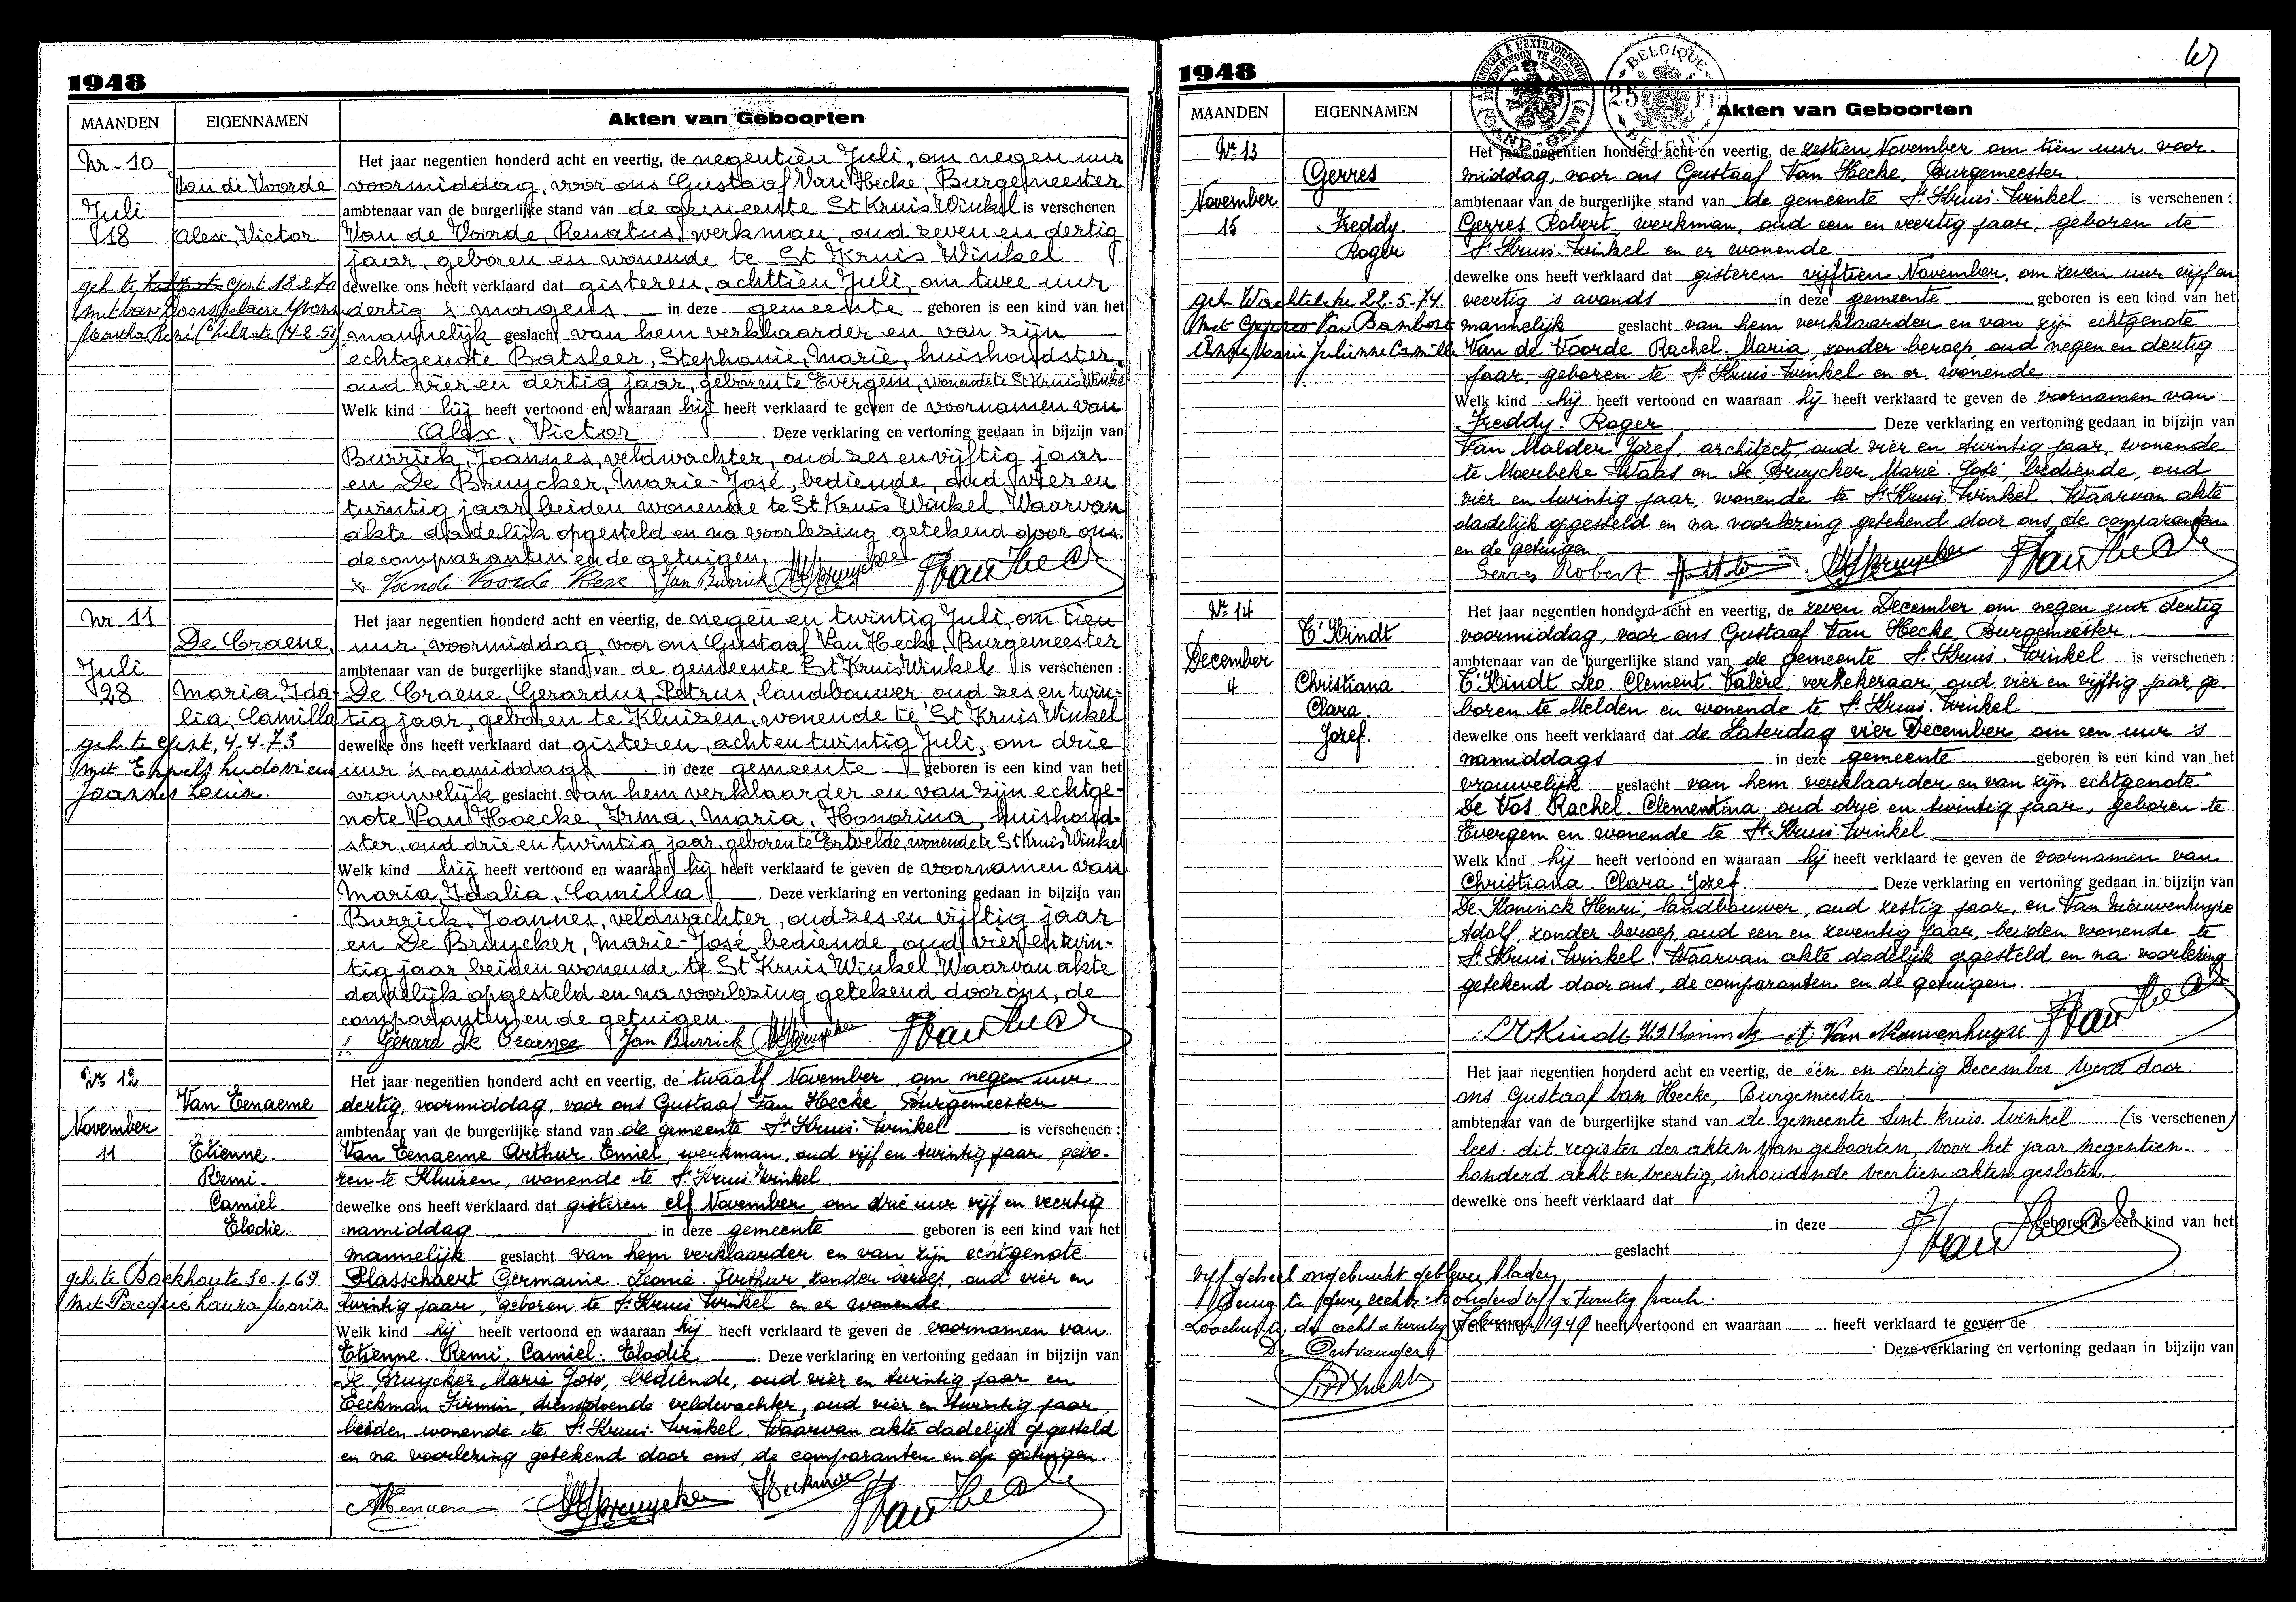 1948
MAANDEN EIGENNAMEN Akten van Geboorten
Nr 10
Van de Voorde
Juli
18 Alex, Victor
geh. te Gent 18.2.70
Het jaar negentien honderd acht en veertig, de negentien Juli, om negen uur
voormiddag, voor ons Gustaaf Van Hecke, Burgemeester
ambtenaar van de burgerlijke stand van de gemeente St Kruis Winkel is verschenen
Van de Voorde, Renatus, werkman, oud zeven en dertig
jaar, geboren en wonende te St Kruis Winkel
dewelke ons heeft verklaard dat gisteren, achttien Juli, om twee uur
dertig 's morgens in deze gemeente geboren is een kind van het
mannelijk geslacht van hem verklaarder en van zijn
echtgenote Batsleer, Stephanie, Marie, huishoudster,
oud vier en dertig jaar, geboren te Evergem, wonende te St Kruis Winkel
Welk kind hij heeft vertoond en waaraan hij heeft verklaard te geven de voornamen van
Alex, Victor. Deze verklaring en vertoning gedaan in bijzijn van
Burrick, Joannes, veldwachter, oud zes en vijftig jaar
en De Bruycker, Marie-José, bediende, oud vier en
twintig jaar, beiden wonende te St Kruis Winkel. Waarvan
akte dadelijk opgesteld en na voorlezing getekend door ons.
de comparanten en de getuigen.
x Vande Voorde Rene Jan Burrick
Nr 11
De Craene,
Juli
28 Maria, Ida-
lia, Camilla
geh. te Gent, 4.4.73
met Engels Ludovicus
Joannes Louis.
Het jaar negentien honderd acht en veertig, de negen en twintig Juli, om tien
uur, voormiddag, voor ons Gustaaf Van Hecke, Burgemeester
ambtenaar van de burgerlijke stand van de gemeente St Kruis Winkel is verschenen :
De Craene, Gerardus, Petrus, landbouwer, oud zes en twin-
tig jaar, geboren te Kluizen, wonende te St Kruis Winkel
dewelke ons heeft verklaard dat gisteren, acht en twintig Juli, om drie
uur 's namiddags in deze gemeente geboren is een kind van het
vrouwelijk geslacht van hem verklaarder en van zijn echtge-
note Van Hoecke, Irma, Maria, Honorina, huishoud-
ster, oud drie en twintig jaar, geboren te Ertvelde, wonende te St Kruis Winkel
Welk kind hij heeft vertoond en waaraan hij heeft verklaard te geven de voornamen van
Maria, Idalia, Camilla. Deze verklaring en vertoning gedaan in bijzijn van
Burrick, Joannes, veldwachter, oud zes en vijftig jaar
en De Bruycker, Marie-José, bediende, oud vier en twin-
tig jaar, beiden wonende te St Kruis Winkel. Waarvan akte
dadelijk opgesteld en na voorlezing getekend door ons, de
comparanten en de getuigen.
Gérard De Craene Jan Burrick
Nr 12
Van Eenaeme
November
11 Etienne.
Remi.
Camiel.
Elodie.
geh. te Boekhoute 30-1-69
met Pacqué Laura Maria
Het jaar negentien honderd acht en veertig, de twaalf November om negen uur
dertig, voormiddag, voor ons Gustaaf Van Hecke, Burgemeester
ambtenaar van de burgerlijke stand van de gemeente St Kruis. Winkel is verschenen :
Van Eenaeme Arthur. Emiel, werkman, oud vijf en twintig jaar, gebo-
ren te Kluizen, wonende te St Kruis. Winkel.
dewelke ons heeft verklaard dat gisteren elf November om drie uur vijf en veertig
namiddag in deze gemeente geboren is een kind van het
mannelijk geslacht van hem verklaarder en van zijn echtgenote
Plasschaert Germaine. Leonie. Arthur, zonder beroep, oud vier en
twintig jaar, geboren te St Kruis Winkel en er wonende.
Welk kind hij heeft vertoond en waaraan hij heeft verklaard te geven de voornamen van
Etienne. Remi. Camiel. Elodie. Deze verklaring en vertoning gedaan in bijzijn van
De Bruycker Marie José, bediende, oud vier en twintig jaar en
Eeckman Firmin, dienstdoende veldwachter, oud vier en twintig jaar,
beiden wonende te St Kruis. Winkel. Waarvan akte dadelijk opgesteld
en na voorlezing getekend door ons, de comparanten en de getuigen.
1948
BELGIQUE
25 Fr
GAND-GENT
MAANDEN EIGENNAMEN Akten van Geboorten
Nr 13
Gerres
November
15 Freddy.
Roger
geh. Wachtebeke 22-5-74
Het jaar negentien honderd acht en veertig, de zestien November om tien uur voor-
middag, voor ons Gustaaf Van Hecke, Burgemeester.
ambtenaar van de burgerlijke stand van de gemeente St Kruis. Winkel is verschenen :
Gerres Robert, werkman, oud een en veertig jaar, geboren te
St Kruis. Winkel en er wonende.
dewelke ons heeft verklaard dat gisteren vijftien November, om zeven uur vijf en
veertig 's avonds in deze gemeente geboren is een kind van het
mannelijk geslacht van hem verklaarder en van zijn echtgenote
Van de Voorde Rachel. Maria, zonder beroep, oud negen en dertig
jaar, geboren te St Kruis. Winkel en er wonende.
Welk kind hij heeft vertoond en waaraan hij heeft verklaard te geven de voornamen van
Freddy. Roger. Deze verklaring en vertoning gedaan in bijzijn van
Van Malder Jozef, architect, oud vier en twintig jaar, wonende
te Moerbeke-Waas en De Bruycker Marie. José, bediende, oud
vier en twintig jaar, wonende te St Kruis. Winkel. Waarvan akte
dadelijk opgesteld en na voorlezing getekend door ons, de comparanten
en de getuigen.
Gerres Robert
Nr 14
T'Kindt
December
4 Christiana.
Clara.
Jozef.
Het jaar negentien honderd acht en veertig, de zeven December om negen uur dertig
voormiddag, voor ons Gustaaf Van Hecke, Burgemeester.
ambtenaar van de burgerlijke stand van de gemeente St Kruis. Winkel is verschenen :
T'Kindt Leo. Clement. Valère, verzekeraar, oud vier en vijftig jaar, ge-
boren te Melden en wonende te St Kruis. Winkel
dewelke ons heeft verklaard dat de Zaterdag vier December, om een uur 's
namiddags in deze gemeente geboren is een kind van het
vrouwelijk geslacht van hem verklaarder en van zijn echtgenote
De Vos Rachel. Clementina, oud drie en twintig jaar, geboren te
Evergem en wonende te St Kruis. Winkel
Welk kind hij heeft vertoond en waaraan hij heeft verklaard te geven de voornamen van
Christiana. Clara. Jozef. Deze verklaring en vertoning gedaan in bijzijn van
De Koninck Henri, landbouwer, oud zestig jaar, en Van Nieuwenhuyze
Adolf, zonder beroep, oud een en zeventig jaar, beiden wonende te
St Kruis. Winkel. Waarvan akte dadelijk opgesteld en na voorlezing
getekend door ons, de comparanten en de getuigen.
Van Nieuwenhuyze
Het jaar negentien honderd acht en veertig, de één en dertig December werd door
ons Gustaaf Van Hecke, Burgemeester
ambtenaar van de burgerlijke stand van de gemeente Sint kruis Winkel (is verschenen)
lees: dit register der akten van geboorten, voor het jaar negentien
honderd acht en veertig, inhoudende veertien akten gesloten.
dewelke ons heeft verklaard dat
in deze geboren is een kind van het
geslacht
vijf geheel ongebruikt gebleven bladen
Welk kind heeft vertoond en waaraan heeft verklaard te geven de
De Ontvanger,
Deze verklaring en vertoning gedaan in bijzijn van